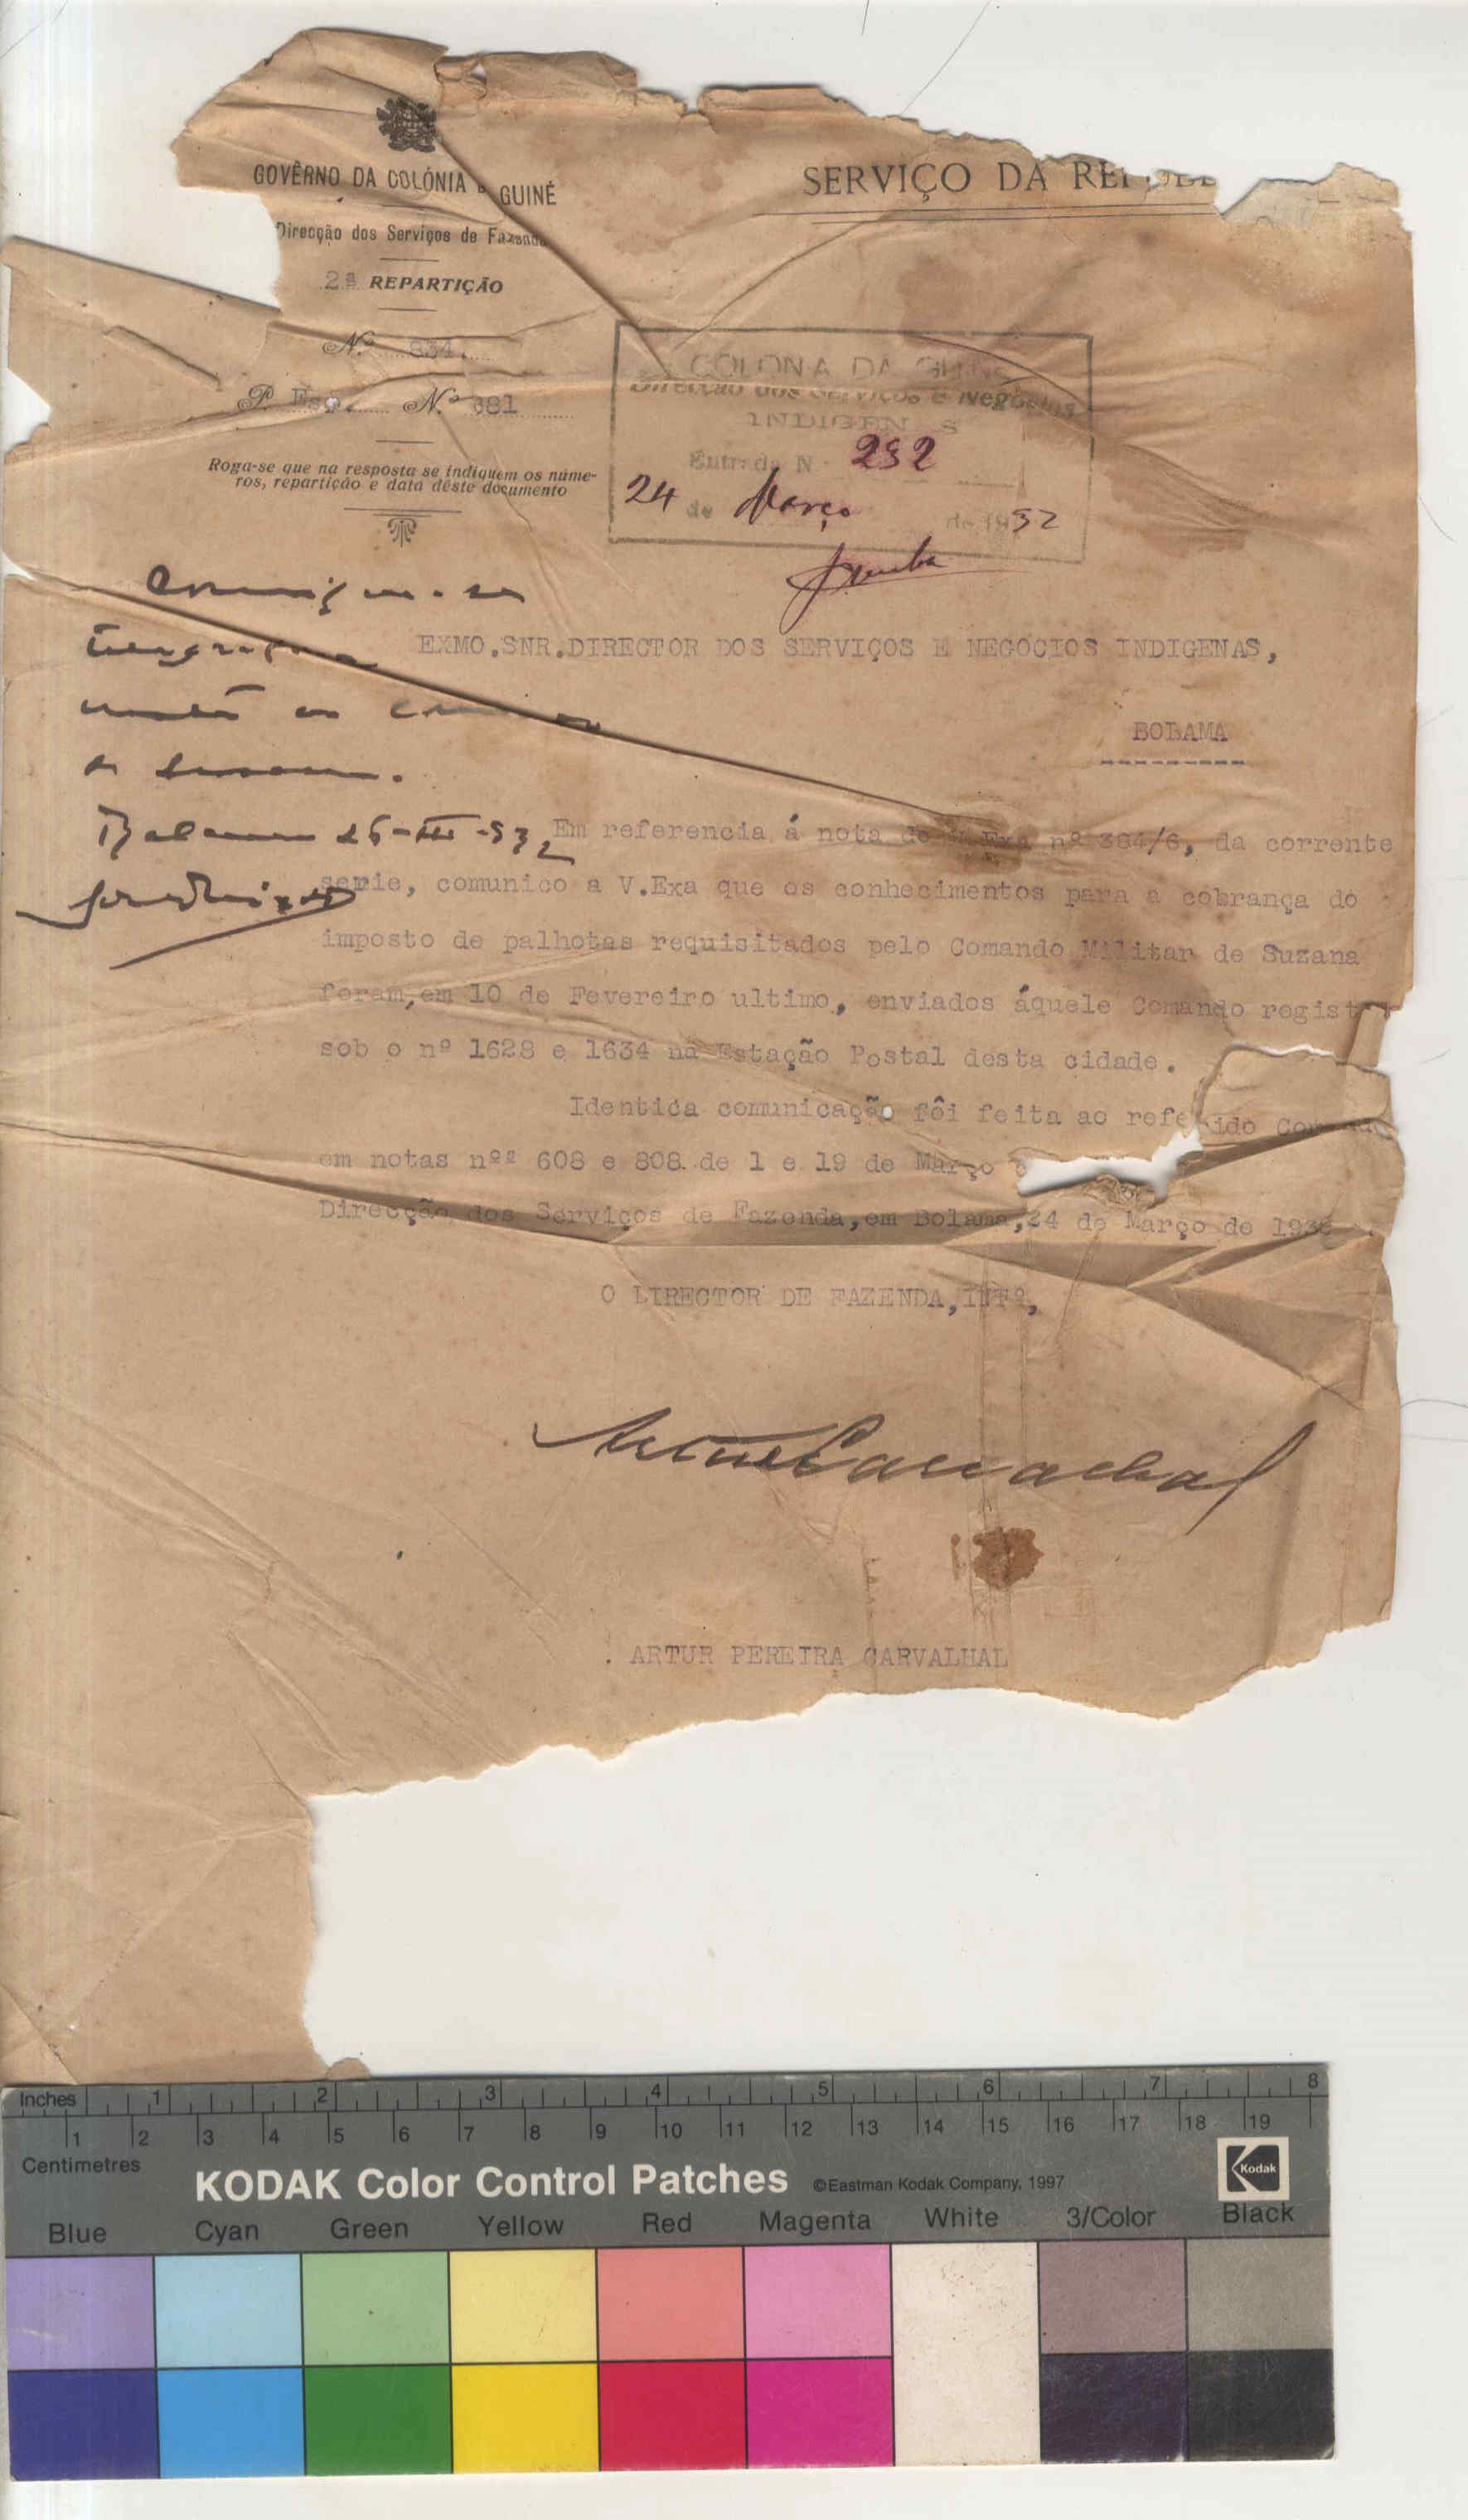 GOVÊRNO DA COLÓNIA GUINÉ
SERVIÇO DA
Direcção dos Serviços de Fazenda
2ª REPARTIÇÃO
N.º 834.
P. Esp. N.º 381
Roga-se que na resposta se indiquem os núme-
ros, repartição e data dêste documento
COLONIA DA
Direcção dos Serviços e Negocios
INDIGEN S
Entrada N.º 292
24 de Março de 1932
EXMO.SNR.DIRECTOR DOS SERVIÇOS E NEGOCIOS INDIGENAS,
BOLAMA
Em referencia á nota de Exa nº 384/6, da corrente
serie, comunico a V.Exa que os conhecimentos para a cobrança do
imposto de palhotas requisitados pelo Comando Militar de Suzana
foram,em 10 de Fevereiro ultimo, enviados áquele Comando regist
sob o nº 1628 e 1634 na Estação Postal desta cidade.
Identica comunicação fôi feita ao referido
em notas nºs 608 e 808 de 1 e 19 de Março
Direcção dos Serviços de Fazenda,em Bolama,24 de Março de
O DIRECTOR DE FAZENDA,INTº,
ARTUR PEREIRA CARVALHAL
Inches 1 2 3 4 5 6 7 8
1 2 3 4 5 6 7 8 9 10 11 12 13 14 15 16 17 18 19
Centimetres
KODAK Color Control Patches ©Eastman Kodak Company, 1997 Kodak
Blue Cyan Green Yellow Red Magenta White 3/Color Black